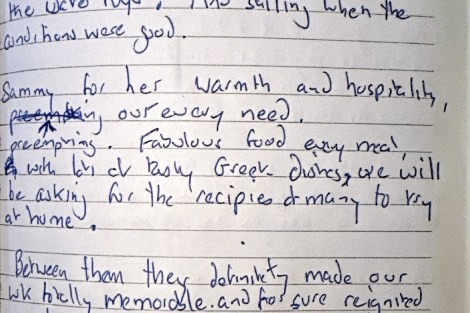 the were . And sailing when the
conditions were good.
Sammy for her warmth and hospitality,
our every need.
preempting. Fabulous food every meal,
with lots of tasty Greek dishes, we will
be asking for the recipies of many to try
at home.
Between them they definitely made our
wk totally memorable. and for sure reignited